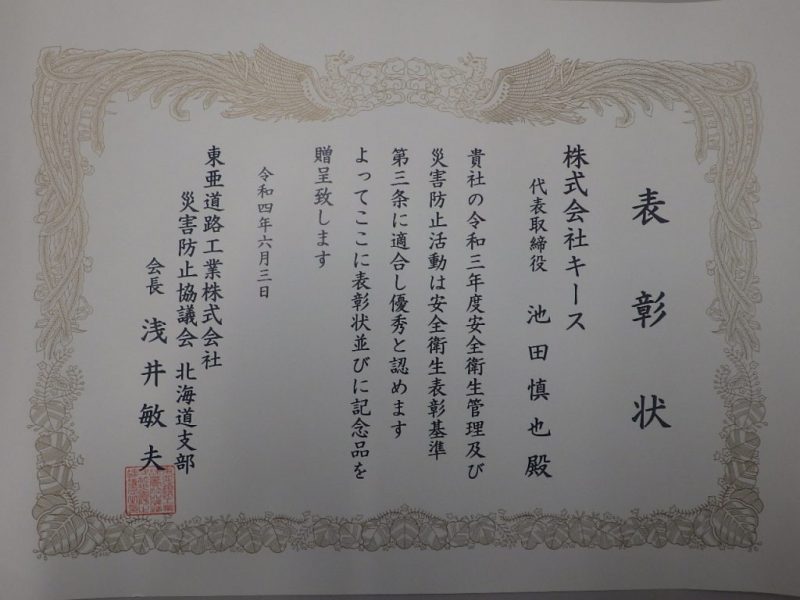 表彰状
株式会社キース
代表取締役 池田慎也殿
貴社の令和三年度安全衛生管理及び
災害防止活動は安全衛生表彰基準
第三条に適合し優秀と認めます
よってここに表彰状並びに記念品を
贈呈致します
令和四年六月三日
東亜道路工業株式会社
災害防止協議会 北海道支部
会長 浅井敏夫